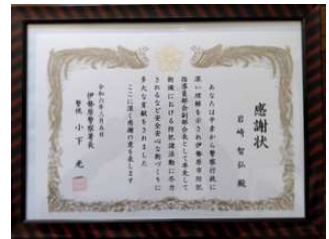 感謝状
岩崎智弘 殿
あなたは平素から警察行政に
深い理解を示され伊勢原市防犯
指導員部会副部会長として率先して
街頭における防犯諸活動に尽力
されるなど安全安心な街づくりに
多大な貢献をされました
ここに深く感謝の意を表します
伊勢原警察署長
警視 小下